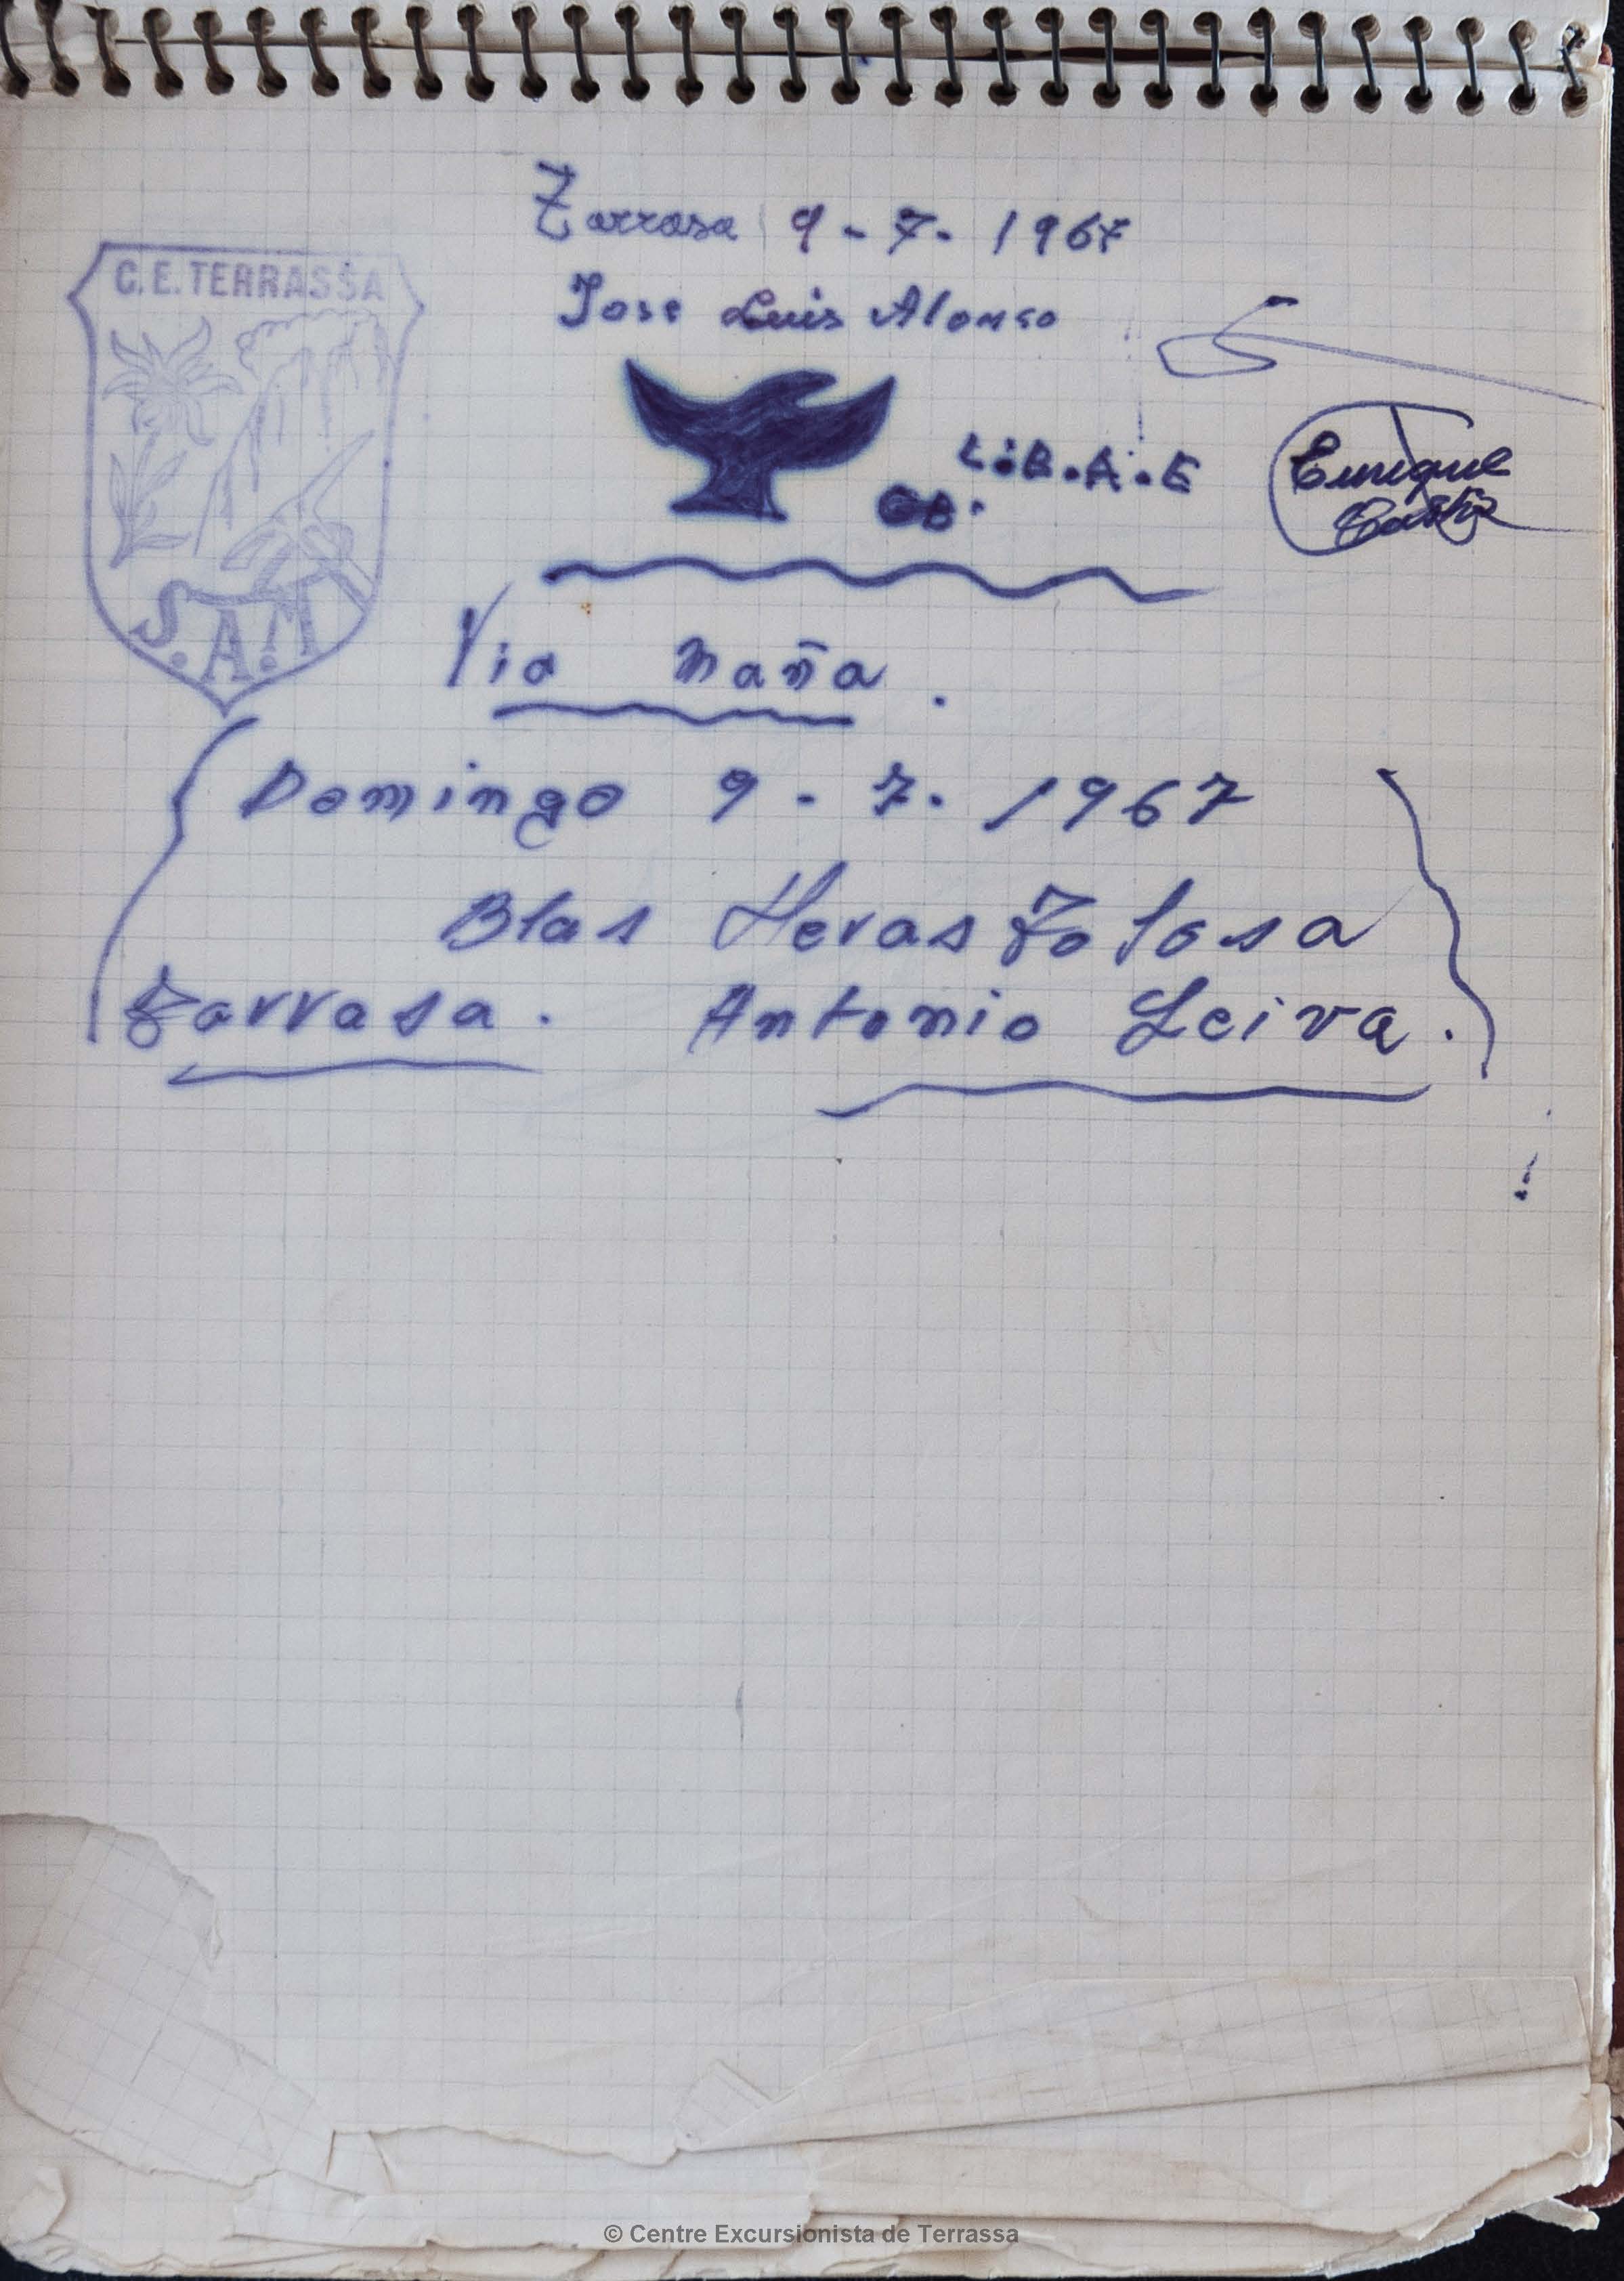 Tarrasa 9-7-1967
C.E. TERRASSA
Jose Luis Alonso
Enrique
S.A.T
Via Maña.
Domingo 9-7-1967
Blas Heras Tolosa
Tarrasa. Antonio Leiva.
© Centre Excursionista de Terrassa